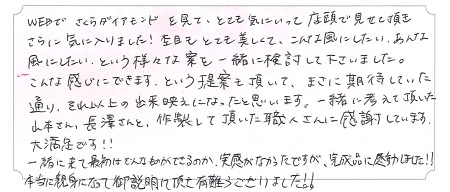 WEBで さくらダイアモンド を見て、とても気にいって 店頭で見せて頂き
さらに 気に入りました！杢目もとても美しくて、こんな風にしたい、あんな
風にしたい、という様々な案を一緒に検討して下さいました。
こんな感じにできます、という提案も頂いて、まさに期待していた
通り、それ以上の出来映えになったと思います。一緒に考えて頂いた
山本さん、長澤さんと、作製して頂いた職人さんに感謝しています。
大満足です!!
一緒に来て最初はどんなものができるのか、実感がなかったですが、完成品に感動しました!!
本当に親身になって御説明して頂き有難うございました!!